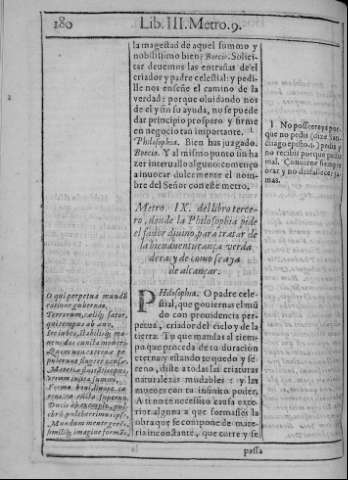 180
Lib. III. Metro. 9.
la magestad de aquel summo y
nobilissimo bien? Boecio. Solici-
tar deuemos las entrañas de el
criador y padre celestial: y pedi-
lle nos enseñe el camino de la
verdad: porque oluidando nos
de el y sin su ayuda, no se puede
dar principio prospero y firme
en negocio tan importante.
Philosophia. Bien has juzgado.
Boecio. Y al mismo punto sin ha
zer interuallo alguno començo
a inuocar dulcemente el nom-
bre del Señor con este metro.
No posseereys por
que no pedis (dize San-
ctiago episto. 4.) pedis y
no recibis porque pedis
mal. Conuiene siempre
orar y no desfallecer ja-
mas.
Metro. IX. del libro terce-
ro, donde la Philosophia pide
el fauor diuino para tratar de
la bienauenturança verda
dera y de como se aya
de alcançar.
Philosophia. O padre cele-
stial, que gouiernas el mū
do con prouidencia per-
petua, criador del cielo y de la
tierra. Tu que mandas al tiem-
po que proceda de tu duración
eterna: y estando tu quedo y se-
reno, diste a todas las criaturas
naturalezas mudables: y las
mueues con tu infinito poder.
A ti no te necessito causa exte-
rior alguna a que formasses la
obra que se compone de mate-
ria inconstante, que corre y se
O qui perpetua mundū
ratione gubernas,
Terrarum, cæliq; sator,
qui tempus ab æuo,
Ire iubes, stabilisq; ma-
nens das cuncta moueri.
Quem non externæ pe-
pulerunt fingere causæ,
Materiæ fluitantis opus,
verum insita summi,
Forma boni, liuore ca-
rens, tu cuncta superno,
Ducis ab exemplo, pul-
chrū pulcherrimus ipse,
Mundum mente gerēs,
similiq; imagine formās,
passa